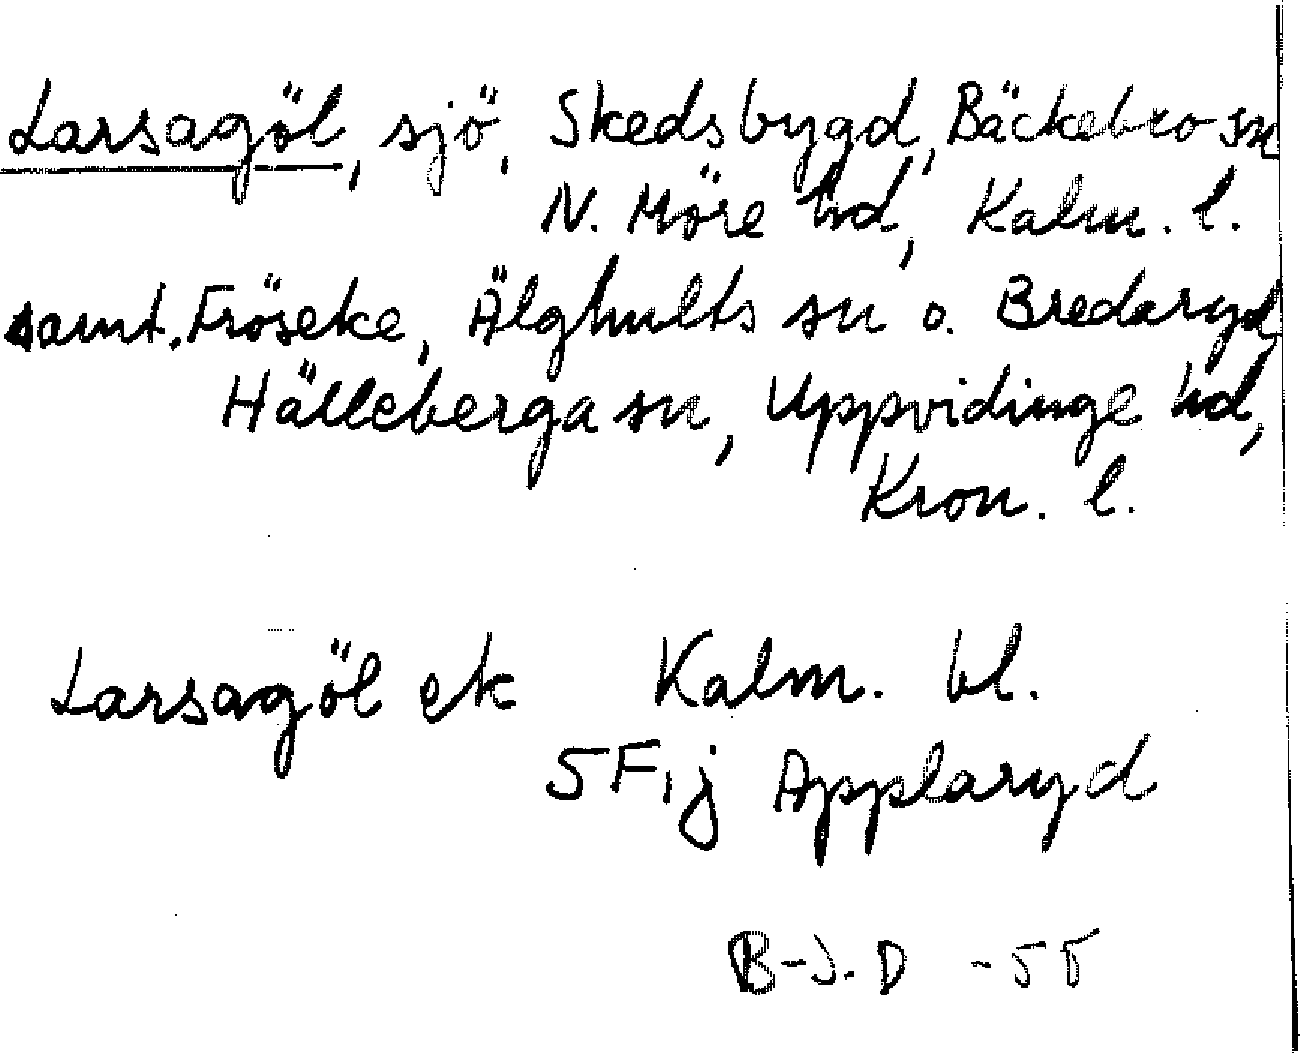 Larsagöl, sjö, Skedsbygd, Bäckebro sn
N. Möre hd, Kalm. l.
samt. Fröseke, Älghults sn o. Bredaryd,
Hälleberga sn, Uppvidinge hd,
Kron. l.
Larsagöl ek Kalm. bl.
5F,j Applaryd
B-J. D -55